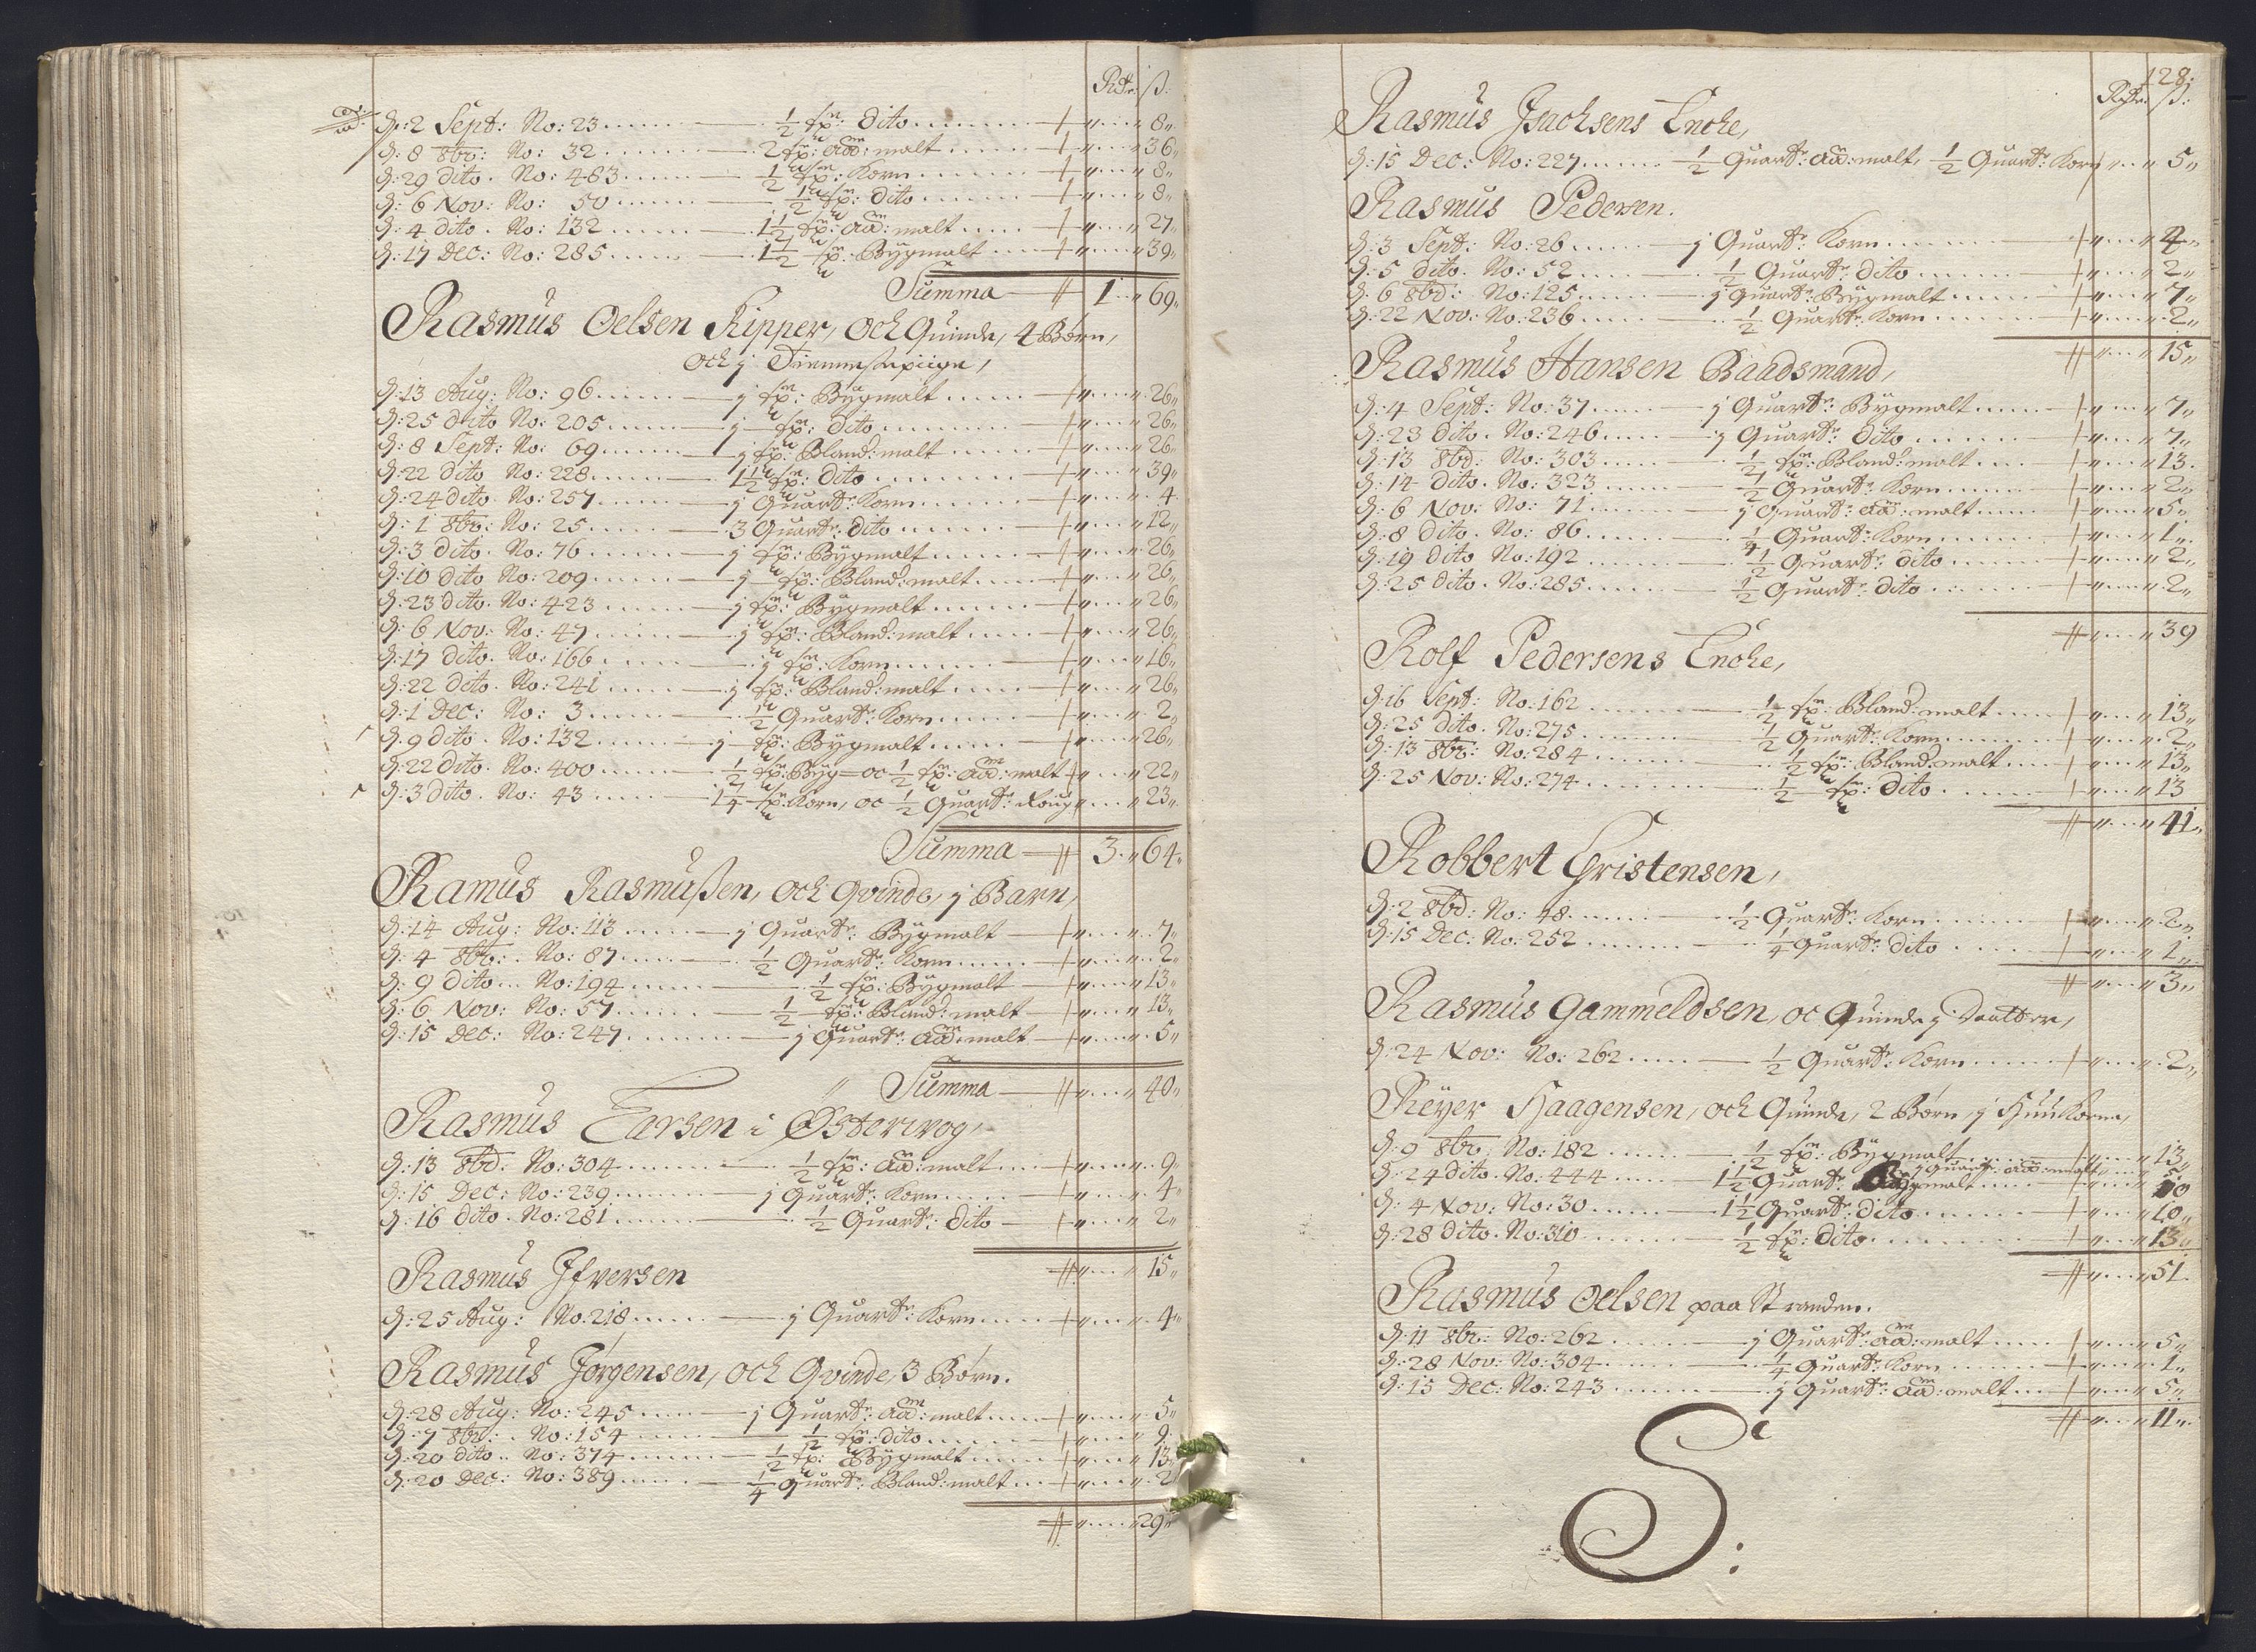 Rdr: ß:
d: 2 Sept: No: 23 ...... ½ sp: dito ...... 8
d: 8 8br: No: 32 ...... 2 sp: aad: malt ...... 36
d: 29 dito. No: 483 ...... ½ sp: Korn ...... 8
d: 6 Nov: No: 50 ...... ½ sp: dito ...... 8
d: 4 dito. No: 132 ...... 1½ sp: aad: malt ...... 27
d: 17 Dec: No: 285 ...... 1½ sp: Bÿgmalt ...... 39
Summa 1 69
Rasmus Oelsen Kipper, och Quinde, 4 Børn,
och j Tienneste piige,
d: 13 Aug: No: 96 ...... j sp: Bÿgmalt ...... 26
d: 25 dito No: 205 ...... j sp: dito ...... 26
d: 8 Sept: No: 69 ...... j sp: Bland: malt ...... 26
d: 22 dito No: 228 ...... 1½ sp: dito ...... 39
d: 24 dito. No: 257 ...... j Quart: Korn ...... 4
d: 1 8br: No: 25 ...... 3 Quart: dito ...... 12
d: 3 dito. No: 76 ...... j sp: Bÿgmalt ...... 26
d: 10 dito No: 209 ...... j sp: Bland: malt ...... 26
d: 23 dito. No: 423 ...... j sp: Bÿgmalt ...... 26
d: 6 Nov: No: 47 ...... j sp: Bland: malt ...... 26
d: 17 dito. No: 166 ...... j sp: Korn ...... 16
d: 22 dito. No: 241 ...... j sp: Bland: malt ...... 26
d: 1 Dec: No: 3 ...... ½ Quart: Korn ...... 2
d: 9 dito. No: 132 ...... j sp: Bÿgmalt ...... 26
d: 22 dito. No: 400 ...... ½ sp: Bÿg= oc ½ sp: aad: malt 22
d: 3 dito. No: 43 ...... 1¼ sp: Korn, oc ½ Quart: Roug 23
Summa 3 64
Ramus Rasmußen, och Qvinde, j Barn,
d: 14 Aug: No: 113 ...... j Quart: Bÿgmalt 7
d: 4 8br: No: 87 ...... ½ Quart: Korn ...... 2
d: 9 dito .. No: 194 ...... ½ sp: Bÿgmalt 13
d: 6 Nov: No: 57 ...... ½ sp: Bland: malt 13
d: 15 Dec: No: 247 ...... j Quart: aad: malt 5
Summa 40
Rasmus Larsen i Østervog,
d: 13 8bd: No: 304 ...... ½ sp: aad: malt ...... 9
d: 15 Dec: No: 239 ...... j Quart: Korn ...... 4
d: 16 dito. No: 281 ...... ½ Quart: dito 2
15
Rasmus Ifversen
d: 25 Aug: No. 218 ...... j Quart: Korn ...... 4
Rasmus Jørgensen, och Qvinde, 3 Børn.
d: 28 Aug: No: 245 ...... j Quart: aad: malt ...... 5
d: 7 8br: No: 154 ...... ½ sp: dito ...... 9
d: 20 dito .. No: 374 ...... ½ sp: Bÿgmalt ...... 13
d: 20 Dec: No: 389 ...... ¼ Quart: Bland: malt ... 2
29
128:
Rdr: ß:
Rasmus Isachsens Encke,
d: 15 Dec: No: 227 ...... ½ Quart: aad: malt, ½ Quart: Korn 5
Rasmus Pedersen.
d: 3 Sept: No: 26 ...... j Quart: Korn ...... 4
d: 5 dito. No: 52 ...... ½ Quart: dito ...... 2
d: 6 8bd: No: 125 ...... j Quart: Bÿgmalt ...... 7
d: 22 Nov: No: 236 ...... ½ Quart: Korn ...... 2
15
Rasmus Hansen Baadsmand,
d: 4 Sept: No: 37 ...... j Quart: Bÿgmalt ...... 7
d: 23 dito. No: 246 ...... j Quart: dito ...... 7
d: 13 8bd: No: 303 ...... ½ sp: Bland: malt ...... 13
d: 14 dito. No: 323 ...... ½ Quart: Korn ...... 2
d: 6 Nov: No: 71 ...... j Quart: aad: malt ...... 5
d: 8 dito. No: 86 ...... ¼ Quart: Korn ...... 1
d: 19 dito No: 192 ...... ½ Quart: dito ...... 2
d: 25 dito. No: 285 ...... ½ Quart: dito ...... 2
39
Rolf Pedersens Encke,
d: 16 Sept: No: 162 ...... ½ sp: Bland: malt ...... 13
d: 25 dito. No: 275 ...... ½ Quart: Korn ...... 2
d: 13 8br: No: 284 ...... ½ sp: Bland: malt ...... 13
d: 25 Nov: No: 274 ...... ½ sp: dito ...... 13
41
Robbert Christensen,
d: 2 8bd: No: 48 ...... ½ Quart: Korn ...... 2
d: 15 Dec: No: 252 ...... ¼ Quart: dito ...... 1
3
Rasmus Gammeldsen, oc Quinde j Daatter,
d: 24 Nov: No: 262 ...... ½ Quart: Korn ...... 2
Reÿer Haagensen, och Quinde, 2 Børn, j Huus Kone,
d: 9 8br: No: 182 ...... ½ sp: Bÿgmalt ...... 13
j Quart: aad: malt ... 5
d: 24 dito. No: 444 ...... 1½ Quart: Bÿgmalt ...... 10
d: 4 Nov: No: 30 ...... 1½ Quart: dito ...... 10
d: 28 dito. No: 310 ...... ½ sp: dito ...... 13
51
Rasmus Oelsen paa Stranden.
d: 11 8br: No: 262 ...... j Quart: aad: malt ...... 5
d: 28 Nov: No: 304 ...... ¼ Quart: Korn ...... 1
d: 15 Dec: No: 243 ...... j Quart: aad: malt ... 5
11
S: